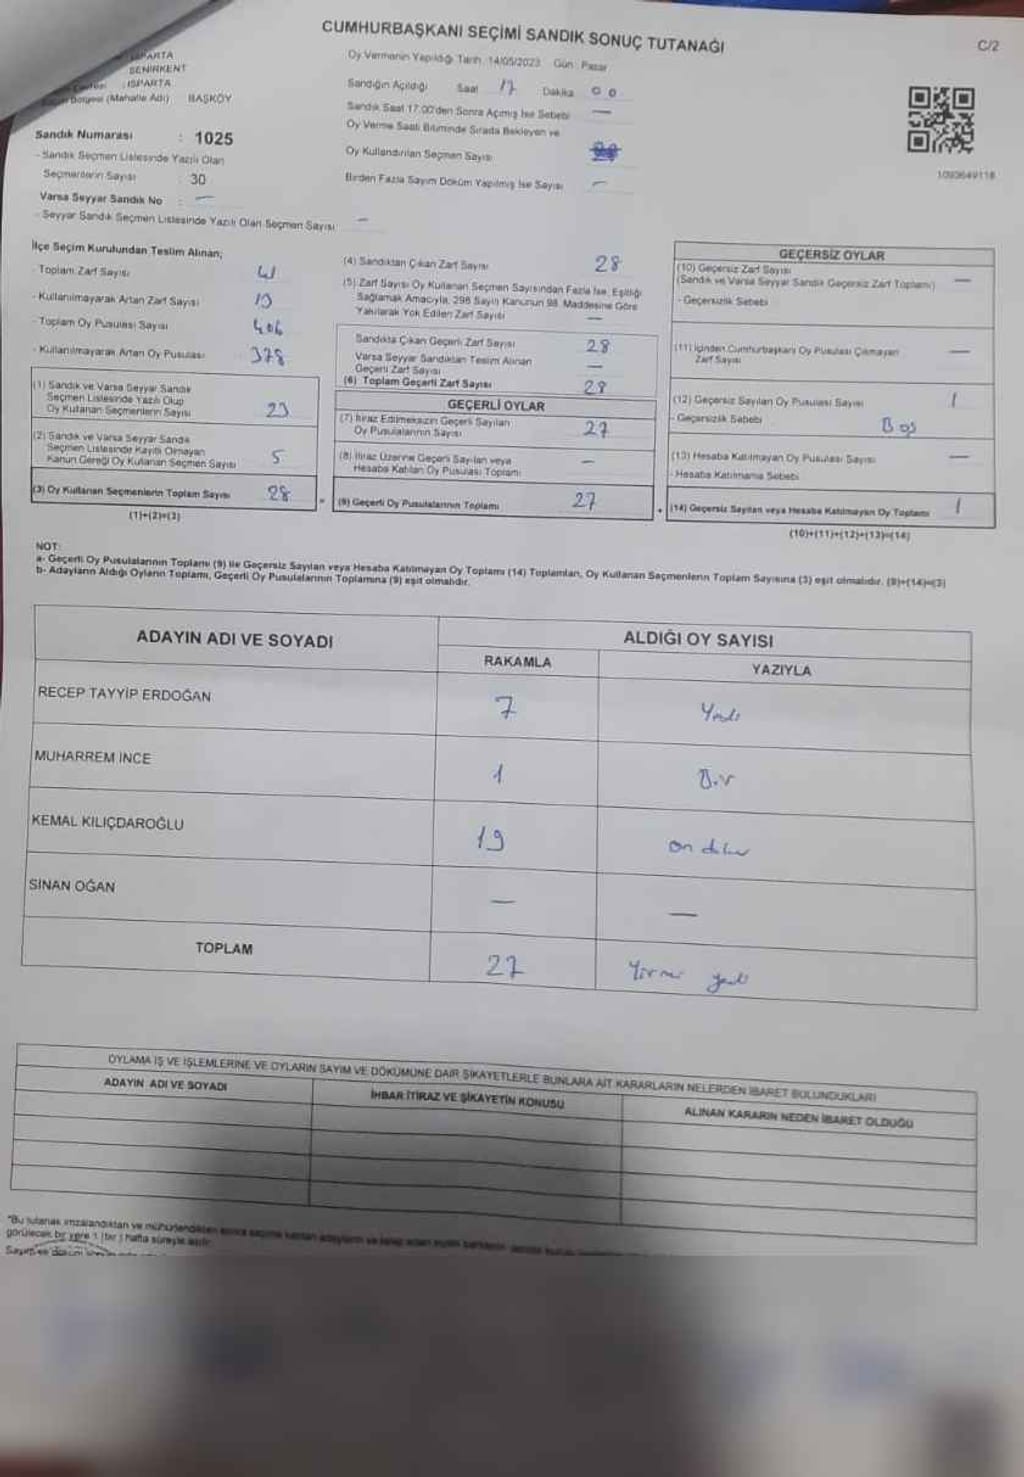 CUMHURBAŞKANI SEÇİMİ SANDIK SONUÇ TUTANAĞI
C/2
ISPARTA
SENİRKENT
ISPARTA
Bölgesi (Mahalle Adı) BAŞKÖY
Sandık Numarası : 1025
- Sandık Seçmen Listesinde Yazılı Olan
Seçmenlerin Sayısı : 30
Varsa Seyyar Sandık No : —
- Seyyar Sandık Seçmen Listesinde Yazılı Olan Seçmen Sayısı : —
Oy Vermenin Yapıldığı Tarih: 14/05/2023 Gün: Pazar
Sandığın Açıldığı Saat 17 Dakika 00
Sandık Saat 17.00'den Sonra Açılmış İse Sebebi —
Oy Verme Saati Bitiminde Sırada Bekleyen ve
Oy Kullandırılan Seçmen Sayısı
Birden Fazla Sayım Döküm Yapılmış İse Sayısı —
1093649118
İlçe Seçim Kurulundan Teslim Alınan;
- Toplam Zarf Sayısı
- Kullanılmayarak Artan Zarf Sayısı
- Toplam Oy Pusulası Sayısı 406
- Kullanılmayarak Artan Oy Pusulası 378
(1) Sandık ve Varsa Seyyar Sandık
Seçmen Listesinde Yazılı Olup
Oy Kullanan Seçmenlerin Sayısı 23
(2) Sandık ve Varsa Seyyar Sandık
Seçmen Listesinde Kayıtlı Olmayan
Kanun Gereği Oy Kullanan Seçmen Sayısı 5
(3) Oy Kullanan Seçmenlerin Toplam Sayısı 28
(1)+(2)=(3)
(4) Sandıktan Çıkan Zarf Sayısı 28
(5) Zarf Sayısı Oy Kullanan Seçmen Sayısından Fazla İse, Eşitliği
Sağlamak Amacıyla, 298 Sayılı Kanunun 98. Maddesine Göre
Yakılarak Yok Edilen Zarf Sayısı —
Sandıkta Çıkan Geçerli Zarf Sayısı 28
Varsa Seyyar Sandıktan Teslim Alınan
Geçerli Zarf Sayısı —
(6) Toplam Geçerli Zarf Sayısı 28
GEÇERLİ OYLAR
(7) İtiraz Edilmeksizin Geçerli Sayılan
Oy Pusulalarının Sayısı 27
(8) İtiraz Üzerine Geçerli Sayılan veya
Hesaba Katılan Oy Pusulası Toplamı —
(9) Geçerli Oy Pusulalarının Toplamı 27
GEÇERSİZ OYLAR
(10) Geçersiz Zarf Sayısı
(Sandık ve Varsa Seyyar Sandık Geçersiz Zarf Toplamı) —
- Geçersizlik Sebebi
(11) İçinden Cumhurbaşkanı Oy Pusulası Çıkmayan
Zarf Sayısı —
(12) Geçersiz Sayılan Oy Pusulası Sayısı 1
- Geçersizlik Sebebi Boş
(13) Hesaba Katılmayan Oy Pusulası Sayısı —
- Hesaba Katılmama Sebebi
(14) Geçersiz Sayılan veya Hesaba Katılmayan Oy Toplamı 1
(10)+(11)+(12)+(13)=(14)
NOT:
a- Geçerli Oy Pusulalarının Toplamı (9) ile Geçersiz Sayılan veya Hesaba Katılmayan Oy Toplamı (14) Toplamları, Oy Kullanan Seçmenlerin Toplam Sayısına (3) eşit olmalıdır. (9)+(14)=(3)
b- Adayların Aldığı Oyların Toplamı, Geçerli Oy Pusulalarının Toplamına (9) eşit olmalıdır.
ADAYIN ADI VE SOYADI
ALDIĞI OY SAYISI
RAKAMLA YAZIYLA
RECEP TAYYİP ERDOĞAN 7 Yedi
MUHARREM İNCE 1 Bir
KEMAL KILIÇDAROĞLU 19 on dokuz
SİNAN OĞAN — —
TOPLAM 27 Yirmi yedi
OYLAMA İŞ VE İŞLEMLERİNE VE OYLARIN SAYIM VE DÖKÜMÜNE DAİR ŞİKAYETLERLE BUNLARA AİT KARARLARIN NELERDEN İBARET BULUNDUKLARI
ADAYIN ADI VE SOYADI
İHBAR İTİRAZ VE ŞİKAYETİN KONUSU
ALINAN KARARIN NEDEN İBARET OLDUĞU
"Bu tutanak imzalandıktan ve mühürlendikten sonra
görülecek bir yere 1 (bir) hafta süreyle asılır.